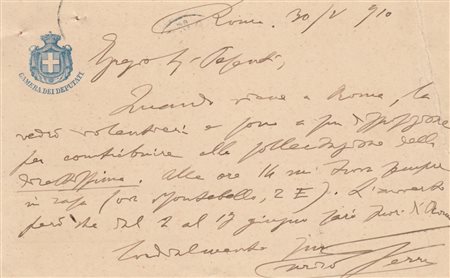 Roma. 30/V 910
CAMERA DEI DEPUTATI
Egregio Sig.
Quando viene a Roma, la
vedrò volentieri e sono a sua disposizione
per contribuire alla sollecitazione della
Alle ore 14 mi trova sempre
in casa (via Montebello, 2 E). L'avverto
però che dal 2 al 17 giugno sarò fuori di Roma
Cordialmente suo
Enrico Ferri